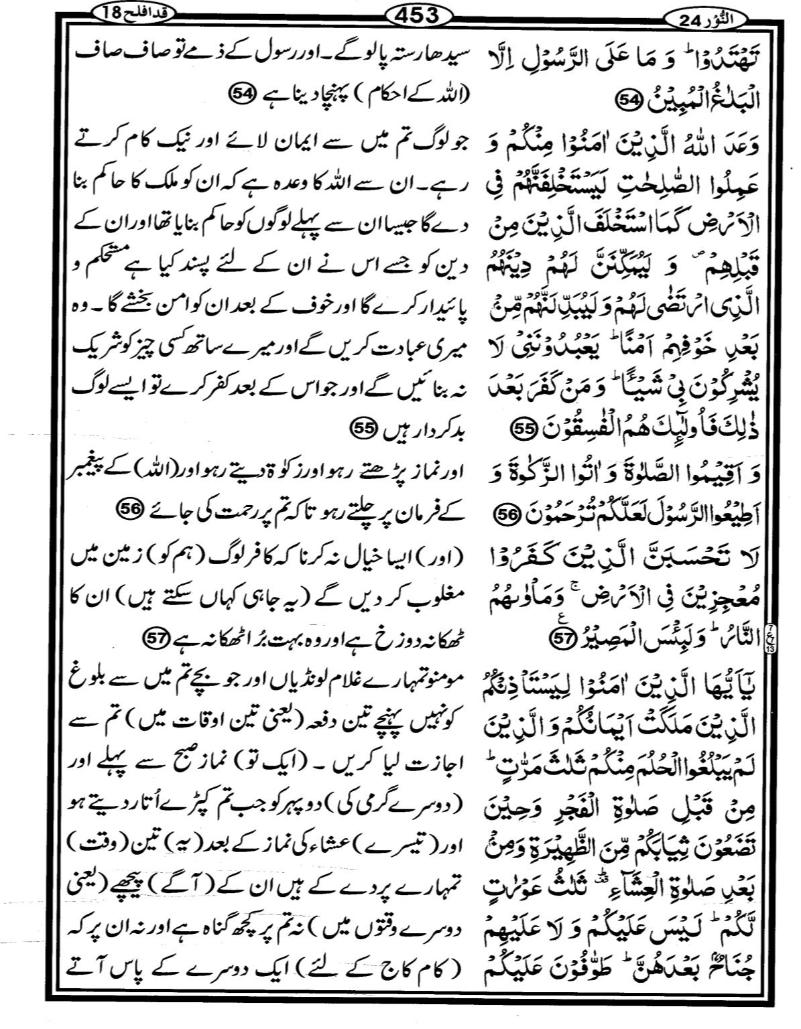 النُّوْر 24
453
قد افلح 18
تَهْتَدُوْا ؕ وَ مَا عَلَى الرَّسُوْلِ اِلَّا
الْبَلٰغُ الْمُبِيْنُ 54
وَعَدَ اللّٰهُ الَّذِيْنَ اٰمَنُوْا مِنْكُمْ وَ
عَمِلُوا الصّٰلِحٰتِ لَيَسْتَخْلِفَنَّهُمْ فِي
الْاَرْضِ كَمَا اسْتَخْلَفَ الَّذِيْنَ مِنْ
قَبْلِهِمْ ۪ وَ لَيُمَكِّنَنَّ لَهُمْ دِيْنَهُمُ
الَّذِي ارْتَضٰى لَهُمْ وَلَيُبَدِّلَنَّهُمْ مِّنْۢ
بَعْدِ خَوْفِهِمْ اَمْنًا ؕ يَعْبُدُوْنَنِيْ لَا
يُشْرِكُوْنَ بِيْ شَيْـًٔا ؕ وَ مَنْ كَفَرَ بَعْدَ
ذٰلِكَ فَاُولٰٓئِكَ هُمُ الْفٰسِقُوْنَ 55
وَ اَقِيْمُوا الصَّلٰوةَ وَ اٰتُوا الزَّكٰوةَ وَ
اَطِيْعُوا الرَّسُوْلَ لَعَلَّكُمْ تُرْحَمُوْنَ 56
لَا تَحْسَبَنَّ الَّذِيْنَ كَفَرُوْا
مُعْجِزِيْنَ فِي الْاَرْضِ ۚ وَمَاْوٰىهُمُ
النَّارُ ؕ وَلَبِئْسَ الْمَصِيْرُ 57 ع
يٰۤاَيُّهَا الَّذِيْنَ اٰمَنُوْا لِيَسْتَاْذِنْكُمُ
الَّذِيْنَ مَلَكَتْ اَيْمَانُكُمْ وَ الَّذِيْنَ
لَمْ يَبْلُغُوا الْحُلُمَ مِنْكُمْ ثَلٰثَ مَرّٰتٍ ؕ
مِنْ قَبْلِ صَلٰوةِ الْفَجْرِ وَحِيْنَ
تَضَعُوْنَ ثِيَابَكُمْ مِّنَ الظَّهِيْرَةِ وَمِنْۢ
بَعْدِ صَلٰوةِ الْعِشَآءِ ؕ ثَلٰثُ عَوْرٰتٍ
لَّكُمْ ؕ لَيْسَ عَلَيْكُمْ وَ لَا عَلَيْهِمْ
جُنَاحٌۢ بَعْدَهُنَّ ؕ طَوّٰفُوْنَ عَلَيْكُمْ
سیدھا رستہ پالو گے۔ اور رسول کے ذمے تو صاف صاف
(اللہ کے احکام) پہنچا دینا ہے 54
جو لوگ تم میں سے ایمان لائے اور نیک کام کرتے
رہے۔ ان سے اللہ کا وعدہ ہے کہ ان کو ملک کا حاکم بنا
دے گا جیسا ان سے پہلے لوگوں کو حاکم بنایا تھا اور ان کے
دین کو جسے اس نے ان کے لئے پسند کیا ہے مستحکم و
پائیدار کرے گا اور خوف کے بعد ان کو امن بخشے گا۔ وہ
میری عبادت کریں گے اور میرے ساتھ کسی چیز کو شریک
نہ بنائیں گے اور جو اس کے بعد کفر کرے تو ایسے لوگ
بدکردار ہیں 55
اور نماز پڑھتے رہو اور زکوٰۃ دیتے رہو اور (اللہ) کے پیغمبر
کے فرمان پر چلتے رہو تاکہ تم پر رحمت کی جائے 56
(اور) ایسا خیال نہ کرنا کہ کافر لوگ (ہم کو) زمین میں
مغلوب کر دیں گے (یہ جا ہی کہاں سکتے ہیں) ان کا
ٹھکانہ دوزخ ہے اور وہ بہت بُرا ٹھکانہ ہے 57
مومنو تمہارے غلام لونڈیاں اور جو بچے تم میں سے بلوغ
کو نہیں پہنچے تین دفعہ (یعنی تین اوقات میں) تم سے
اجازت لیا کریں۔ (ایک تو) نماز صبح سے پہلے اور
(دوسرے گرمی کی) دوپہر کو جب تم کپڑے اُتار دیتے ہو
اور (تیسرے) عشاء کی نماز کے بعد (یہ) تین (وقت)
تمہارے پردے کے ہیں ان کے (آگے) پیچھے (یعنی
دوسرے وقتوں میں) نہ تم پر کچھ گناہ ہے اور نہ ان پر کہ
(کام کاج کے لئے) ایک دوسرے کے پاس آتے